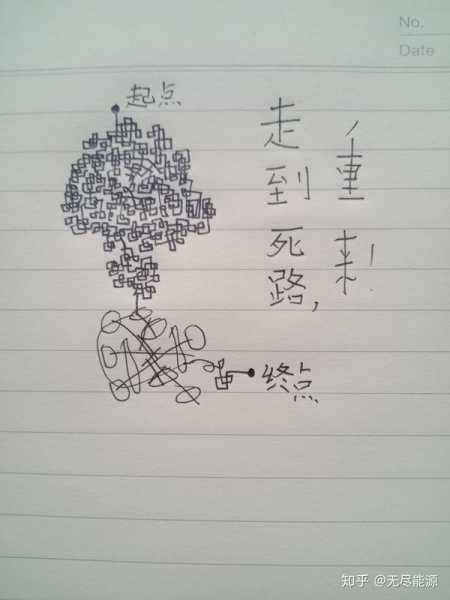 No.
Date
起点
走到死路,
重来!
终点
知乎 @无尽能源